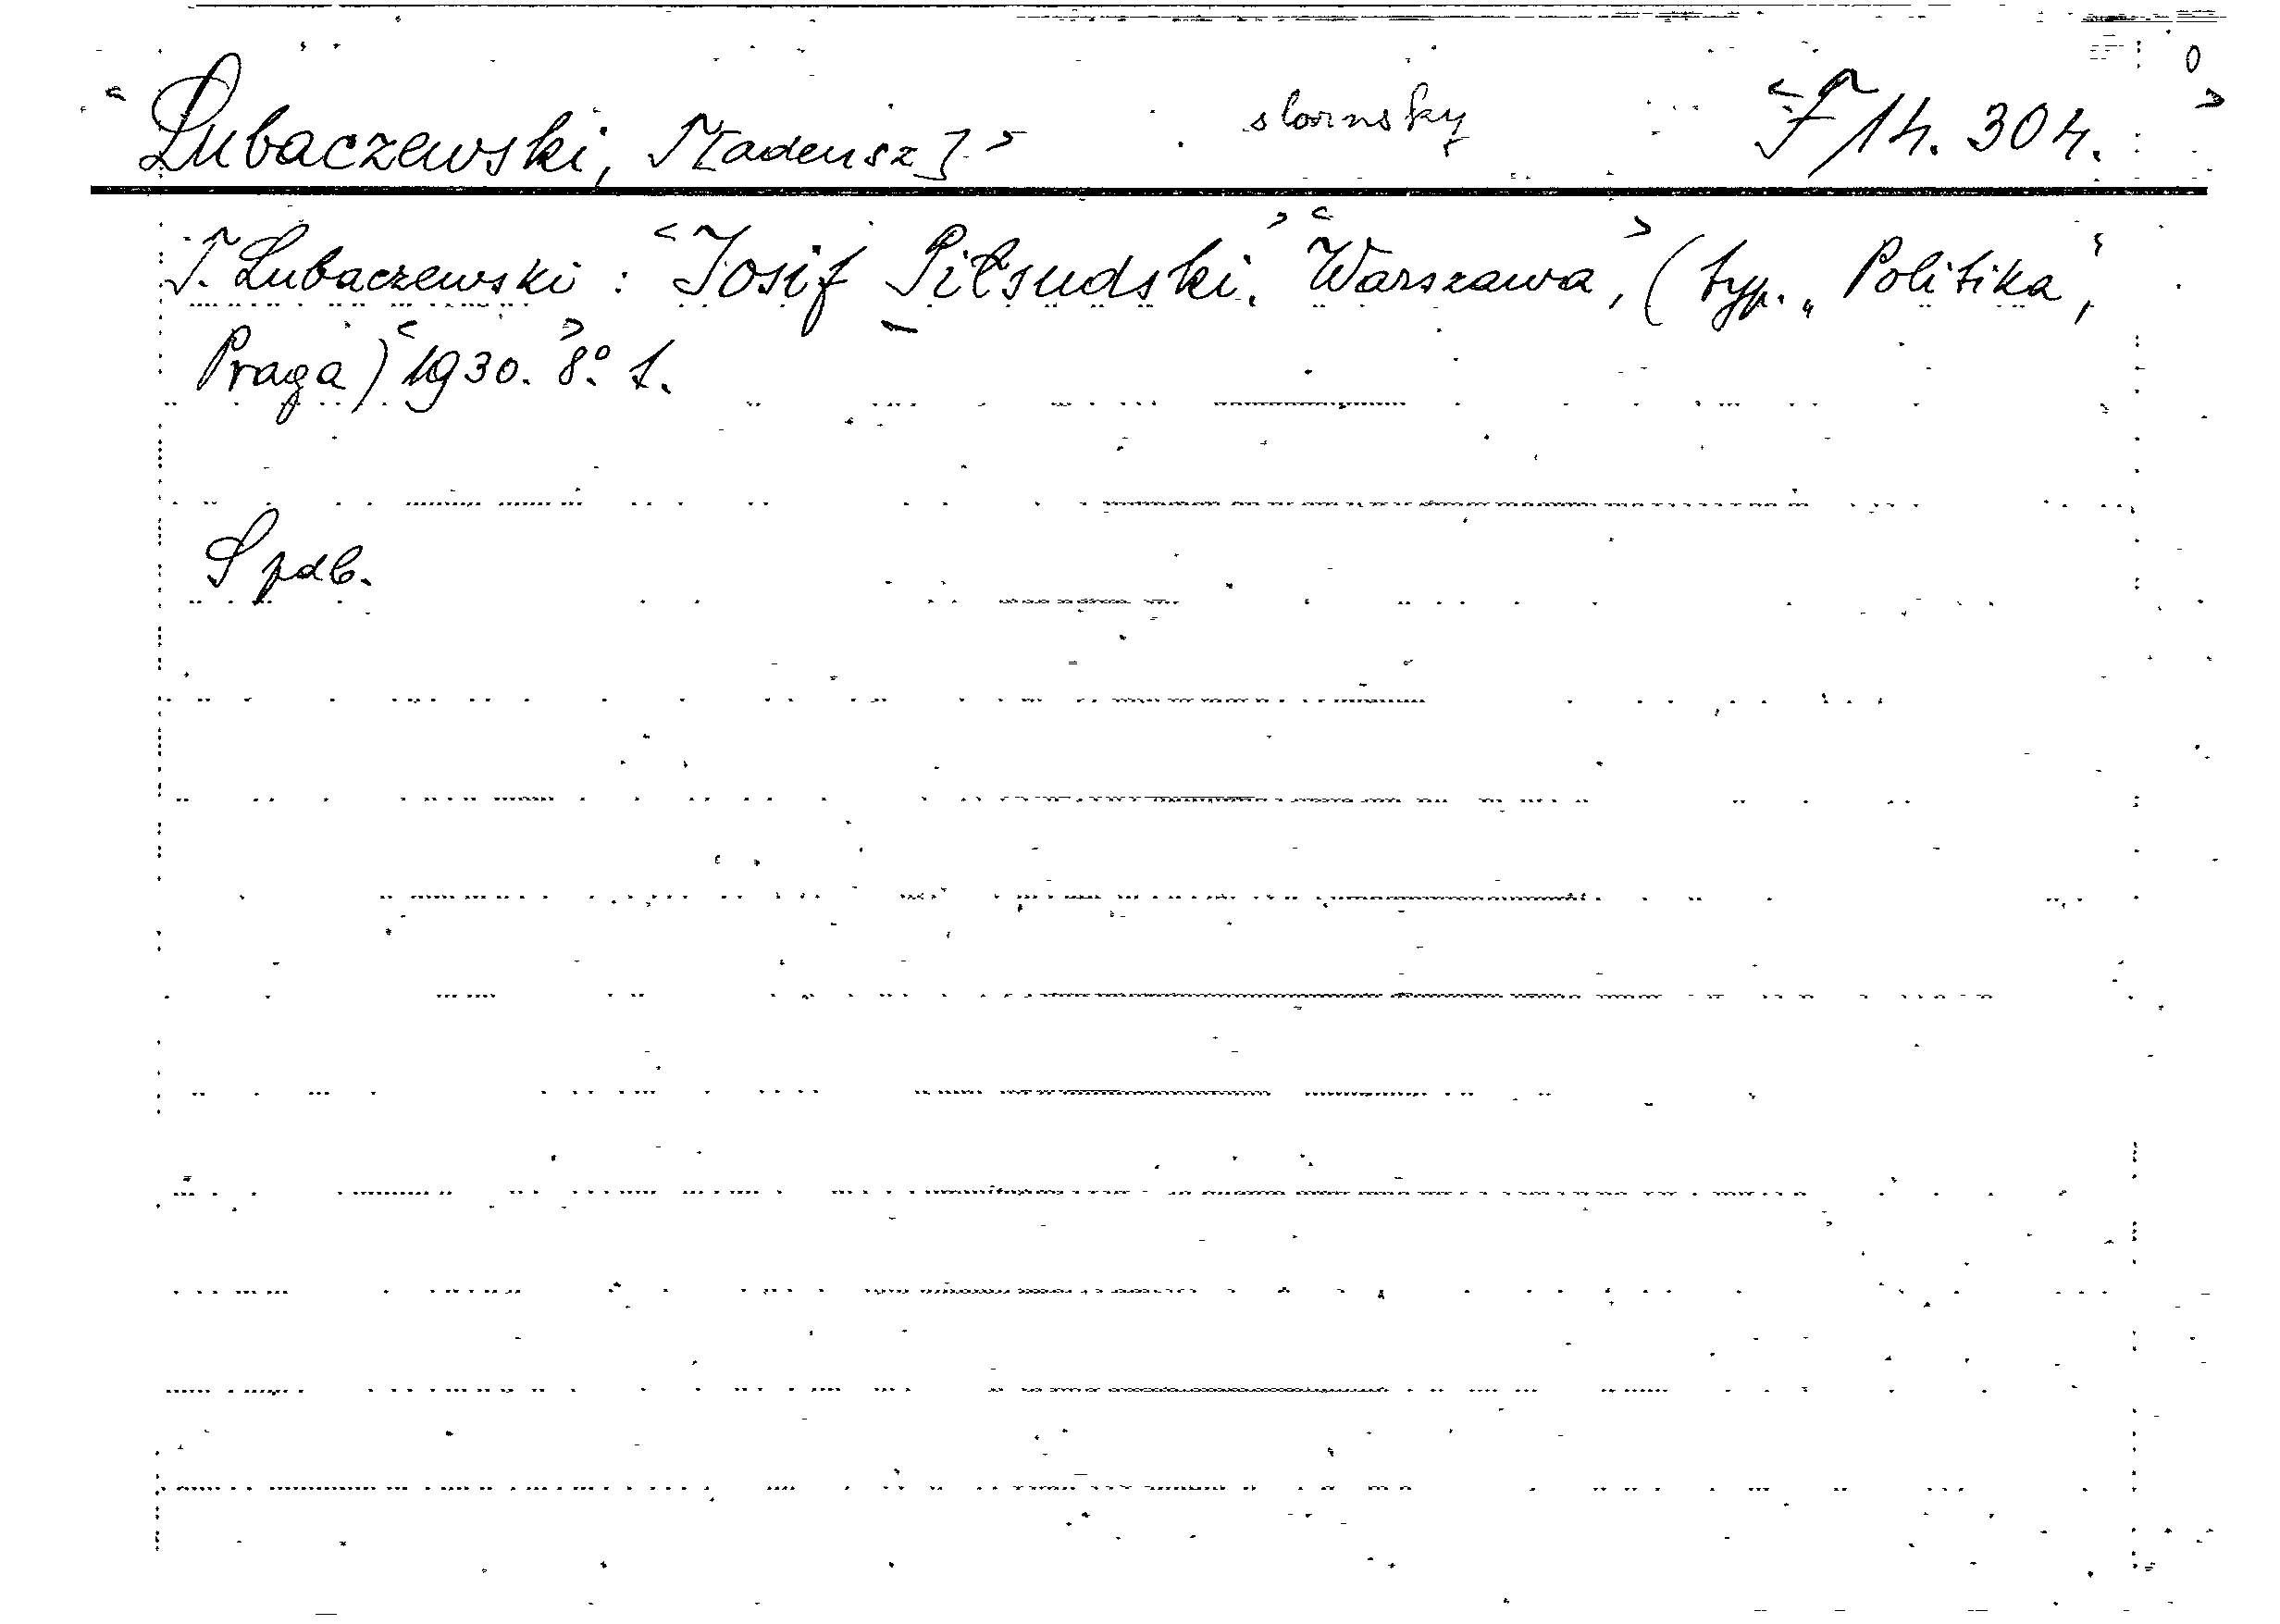 <Lubaczewski, T[adeusz]> <F 14.304.>
T. Lubaczewski: <Josif Piłsudski.> <Warszawa,> (typ. „Politika",
Praga) <1930.> 8°. 1.
S pdb.